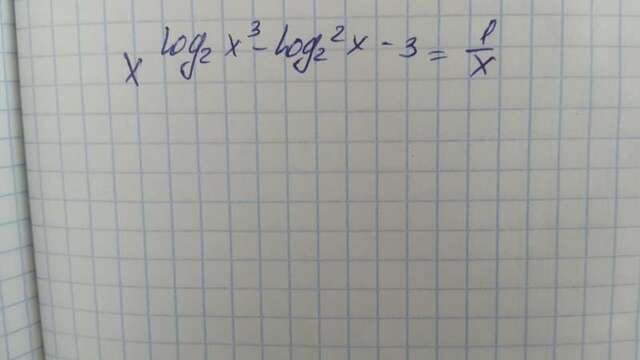 x^{log₂ x³ - log₂² x - 3} = 1/x